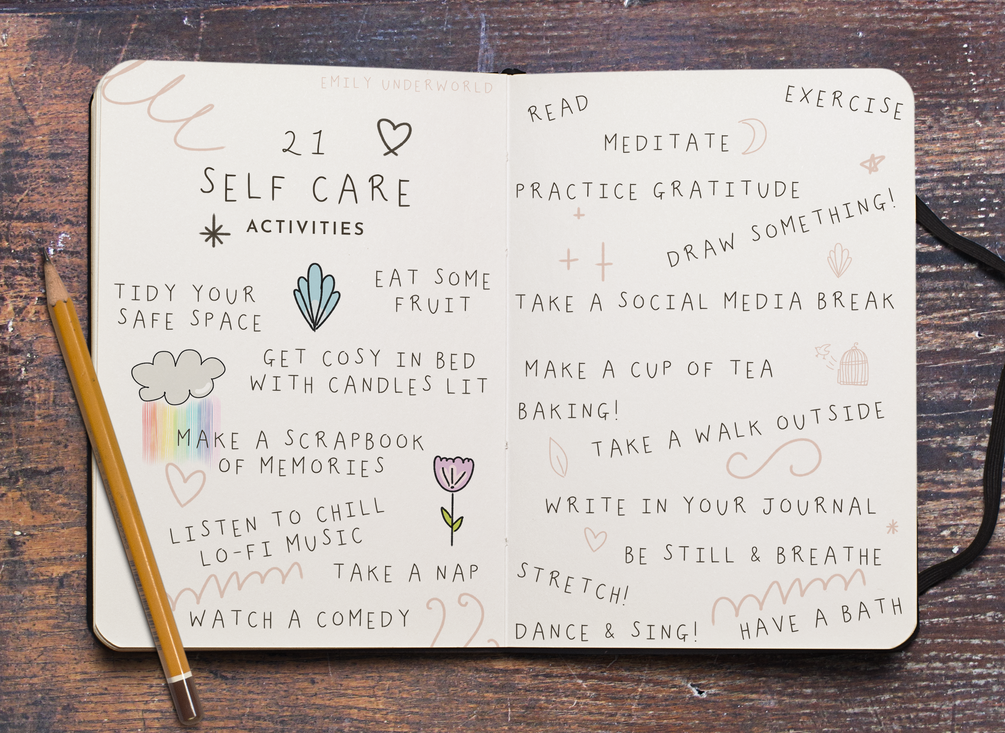 EMILY UNDERWORLD
21
SELF CARE
ACTIVITIES
TIDY YOUR
SAFE SPACE
EAT SOME
FRUIT
GET COSY IN BED
WITH CANDLES LIT
MAKE A SCRAPBOOK
OF MEMORIES
LISTEN TO CHILL
LO-FI MUSIC
TAKE A NAP
WATCH A COMEDY
READ
EXERCISE
MEDITATE
PRACTICE GRATITUDE
DRAW SOMETHING!
TAKE A SOCIAL MEDIA BREAK
MAKE A CUP OF TEA
BAKING!
TAKE A WALK OUTSIDE
WRITE IN YOUR JOURNAL
BE STILL & BREATHE
STRETCH!
HAVE A BATH
DANCE & SING!